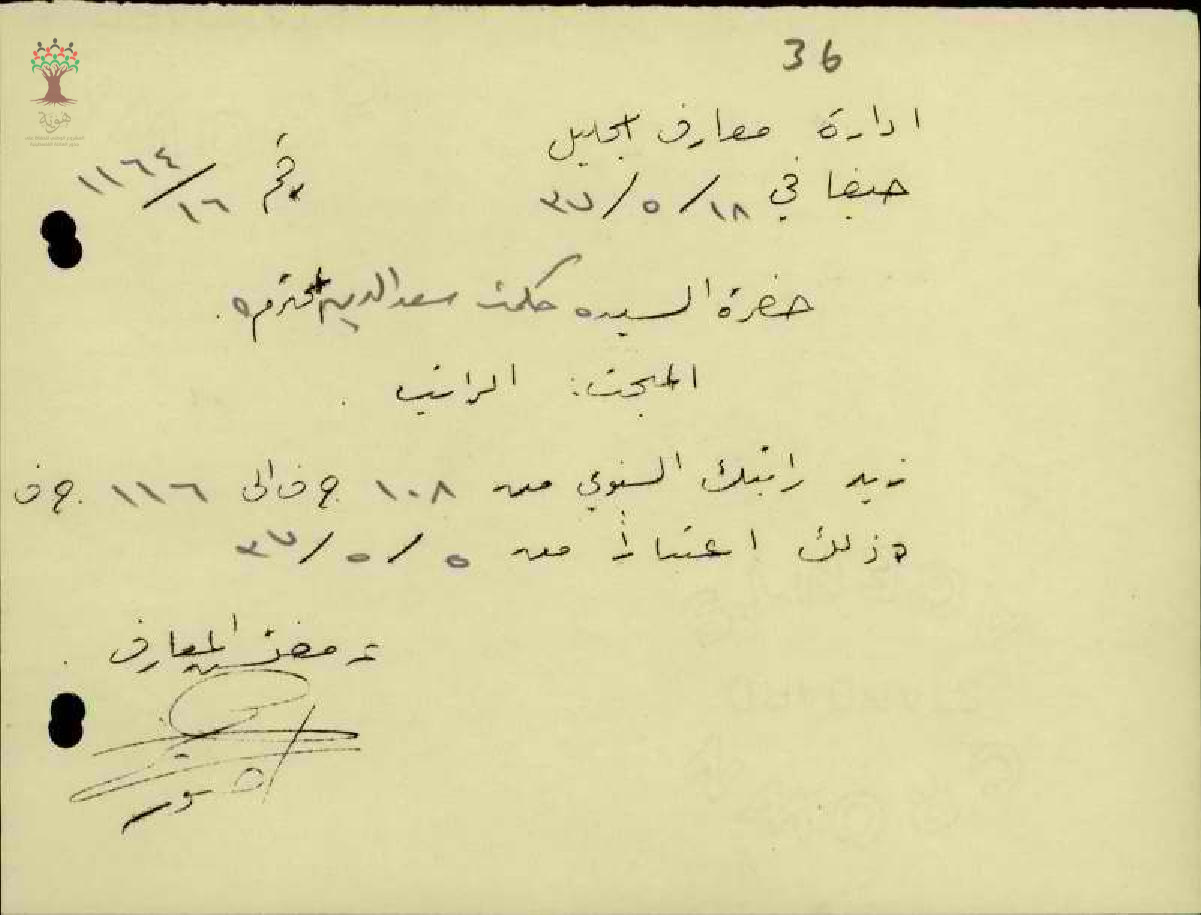 36
ادارة معارف الجليل
حيفا في ١٨/٥/٣٧ رقم ١١٦٤/١٦
حضرة السيده حكمت سعد الدين المحترمه.
المبحث: الراتب.
زيد راتبك السنوي من ١٠٨ ج ف الى ١١٦ ج ف
وذلك اعتباراً من ٥/٥/٣٧
عن مفتش المعارف
هوية